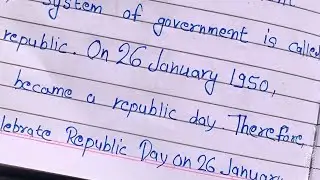 system of government is called
republic. On 26 January 1950,
became a republic day. Therefore,
celebrate Republic Day on 26 January